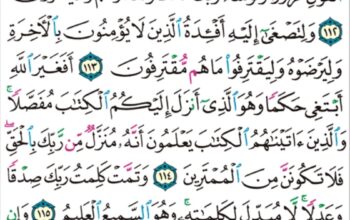 ﴿١١٢﴾ وَلِتَصْغَىٰٓ إِلَيْهِ أَفْـِٔدَةُ ٱلَّذِينَ لَا يُؤْمِنُونَ بِٱلْأَخِرَةِ
وَلِيَرْضَوْهُ وَلِيَقْتَرِفُوا۟ مَا هُم مُّقْتَرِفُونَ ﴿١١٣﴾ أَفَغَيْرَ ٱللَّهِ
أَبْتَغِى حَكَمًا وَهُوَ ٱلَّذِىٓ أَنزَلَ إِلَيْكُمُ ٱلْكِتَـٰبَ مُفَصَّلًا ۚ
وَٱلَّذِينَ ءَاتَيْنَـٰهُمُ ٱلْكِتَـٰبَ يَعْلَمُونَ أَنَّهُۥ مُنَزَّلٌ مِّن رَّبِّكَ بِٱلْحَقِّ ۖ
فَلَا تَكُونَنَّ مِنَ ٱلْمُمْتَرِينَ ﴿١١٤﴾ وَتَمَّتْ كَلِمَتُ رَبِّكَ صِدْقًا
وَعَدْلًا ۚ لَّا مُبَدِّلَ لِكَلِمَـٰتِهِۦ ۚ وَهُوَ ٱلسَّمِيعُ ٱلْعَلِيمُ ﴿١١٥﴾ وَإِن